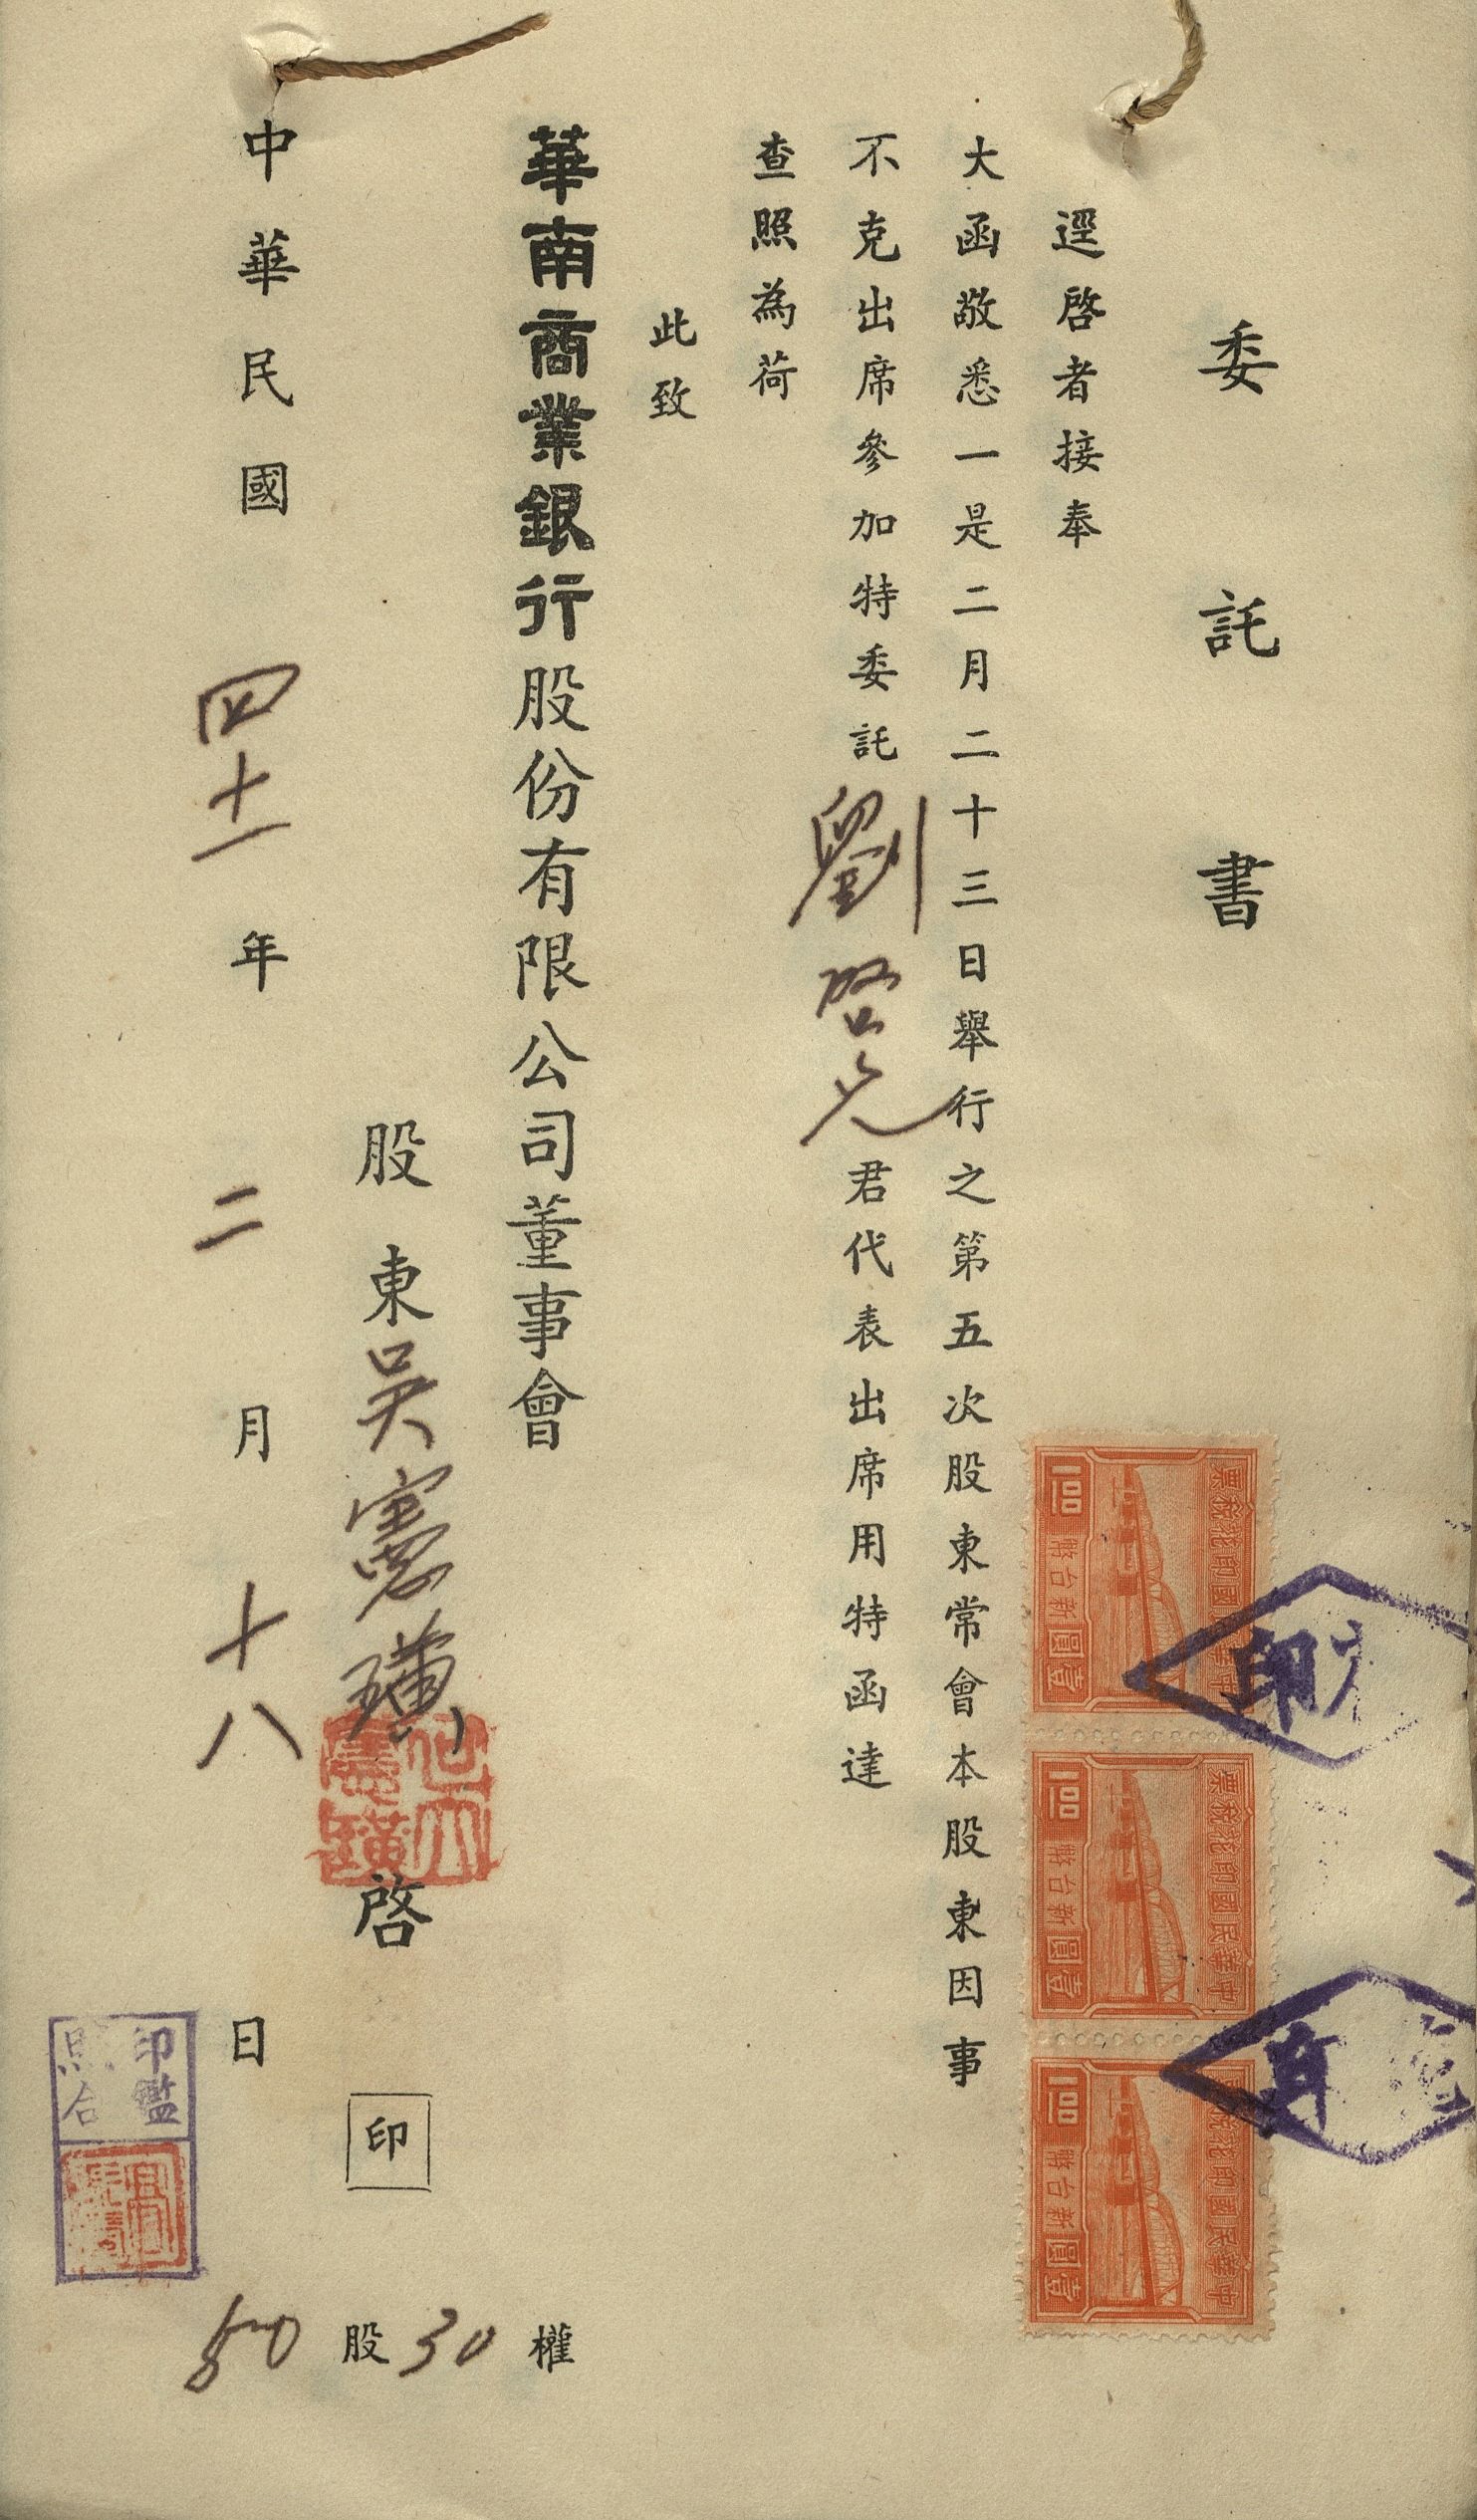 委託書
逕啓者接奉
大函敬悉一是二月二十三日舉行之第五次股東常會本股東因事
不克出席參加特委託劉啓光君代表出席用特函達
查照為荷
此致
華南商業銀行股份有限公司董事會
股東吳憲璜啓 印
中華民國四十一年二月十八日
80股30權
中華民國印花稅票
壹圓 新台幣 1.00
中華民國印花稅票
壹圓 新台幣 1.00
中華民國印花稅票
壹圓 新台幣 1.00
印鑑